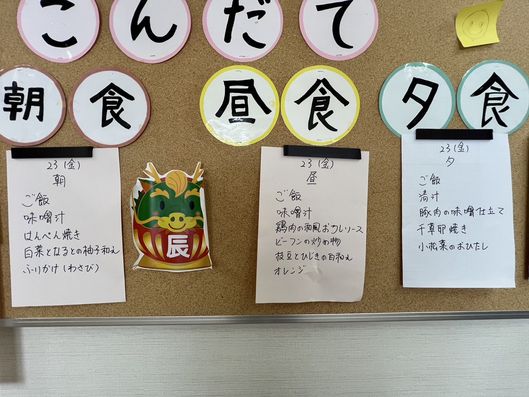 こんだて
朝食
昼食
夕食
23(金)
朝
ご飯
味噌汁
はんぺん焼き
白菜となるとの柚子和え
ふりかけ(わさび)
辰
23(金)
昼
ご飯
味噌汁
鶏肉の和風おろしソース
ビーフンの炒め物
枝豆とひじきの白和え
オレンジ
23(金)
夕
ご飯
清汁
豚肉の味噌仕立て
千草卵焼き
小松菜のおひたし